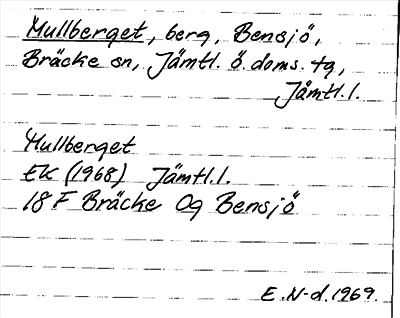 Mullberget, berg, Bensjö,
Bräcke sn, Jämtl. ö. doms. tg,
Jämtl.l.
Mullberget
EK (1968) Jämtl.l.
18 F Bräcke Og Bensjö
E.N-d.1969.